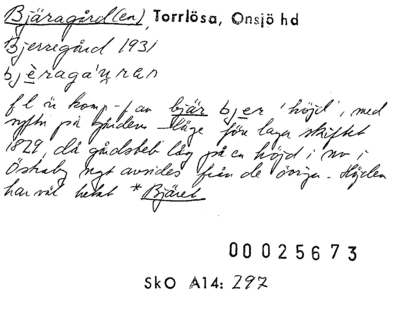 Bjäragård(en), Torrlösa, Onsjö hd
Bjerregård 1931
bjèraga'ɳ̣ran
fl ä komp - f av bjär bjer 'höjd', med
syftn på gårdens läge före laga skiftet
1829, då gårdsbeb låg på en höjd i nv i
Öskaby ngt avsides från de övriga. Höjden
har väl hetat *Bjäret
00025673
SkO A14: 297